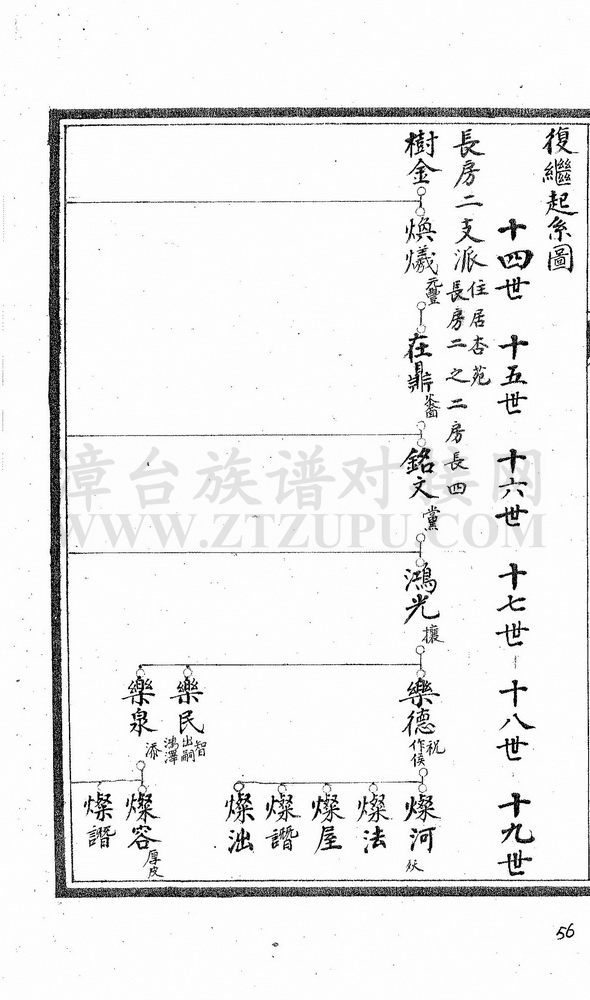 復繼起系圖
十四世
十五世
十六世
十七世
十八世
十九世
長房二支派
住居杏苑
長房二之二房長四
樹金
煥爔
元豐
在鼎
銘文
黨
鴻光
攘
樂德
祝
作侯
樂民
智
出嗣
鴻澤
樂泉
添
燦河
燦法
燦屋
燦譖
燦泏
燦容
厚皮
燦譖
章台族谱对接网
WWW.ZTZUPU.COM
56